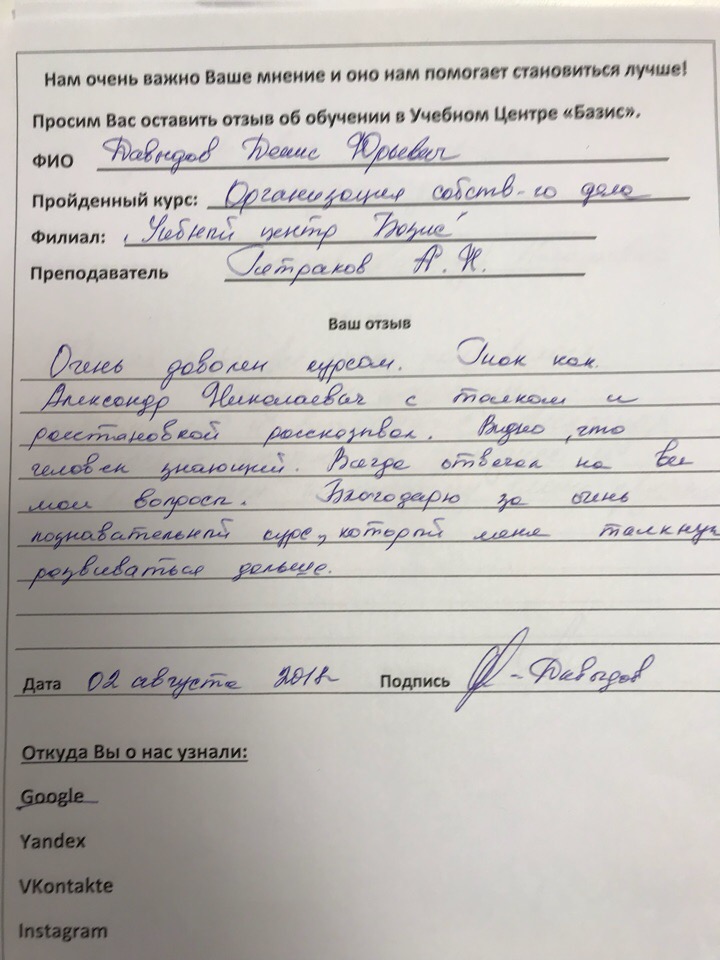 Нам очень важно Ваше мнение и оно нам помогает становиться лучше!
Просим Вас оставить отзыв об обучении в Учебном Центре «Базис».
ФИО Давыдов Денис Юрьевич
Пройденный курс: Организация собств-го дела
Филиал: "Учебный центр Базис"
Преподаватель Петраков А.Н.
Ваш отзыв
Очень доволен курсом. Так как
Александр Николаевич с толком и
расстановкой рассказывал. Видно, что
человек знающий. Всегда отвечал на все
мои вопросы. Благодарю за очень
познавательный курс, который меня толкнул
развиваться дальше.
Дата 02 августа 2018г Подпись Давыдов
Откуда Вы о нас узнали:
Google
Yandex
VKontakte
Instagram